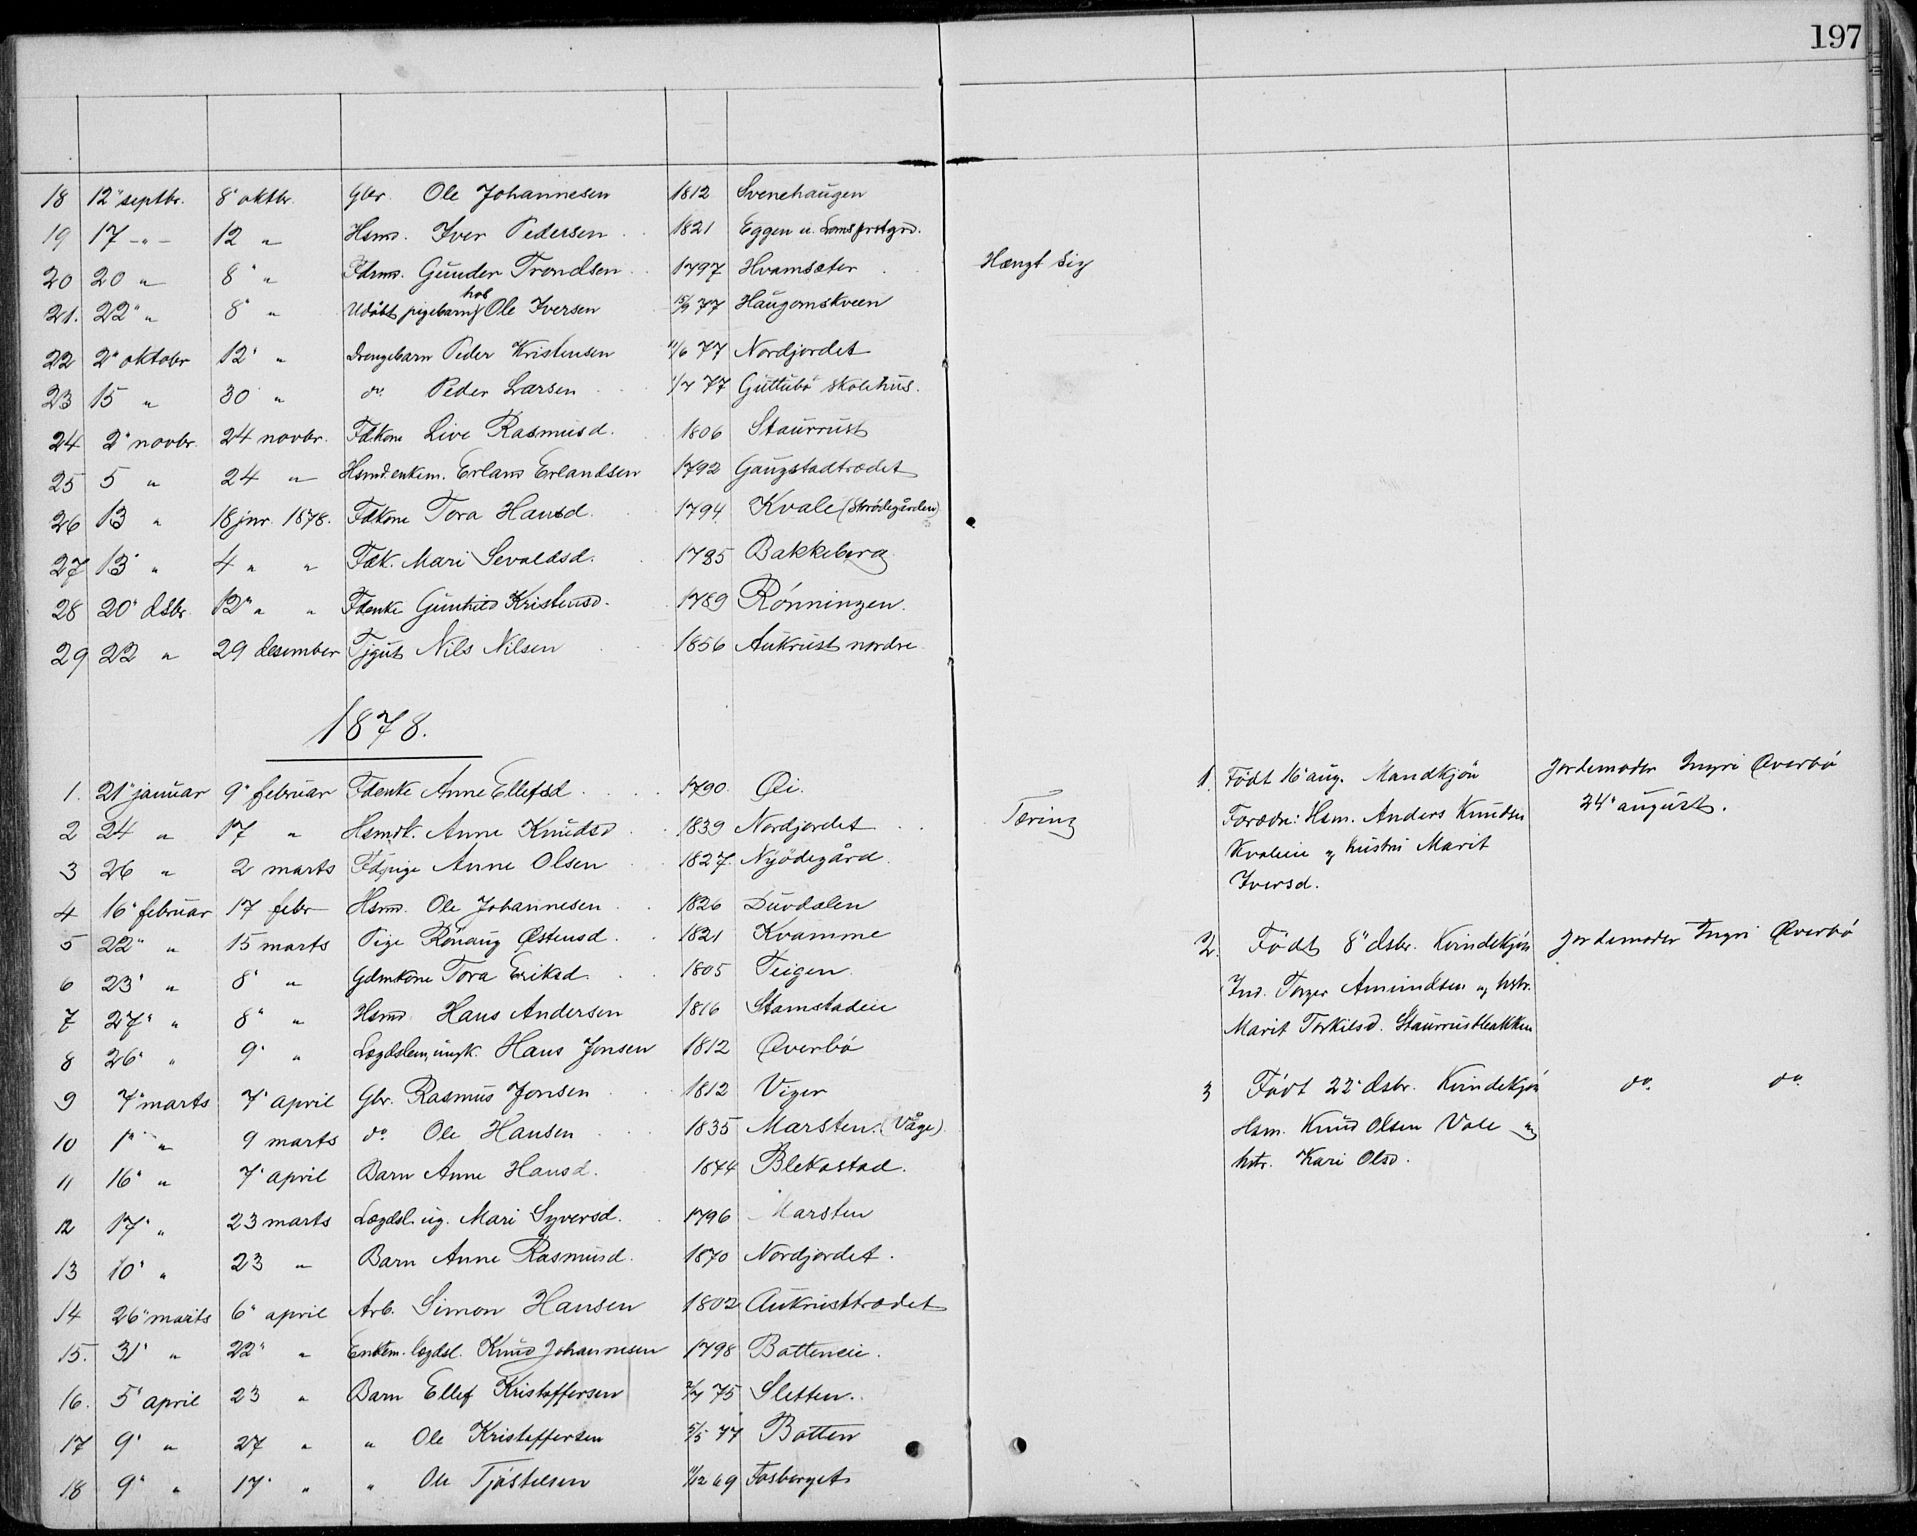 197
18 12" septbr. 8" oktbr. Gbr. Ole Johannesen 1812 Svenehaugen
19 17 -"- 12 " Hsmd. Iver Pedersen 1821 Eggen u. Loms prstgrd.
20 20 " 8" " Fdrmd. Gunder Trondsen 1797 Hvamsæter Hængt sig
21. 22" " 8" " Udøbt pigebarn hos Ole Iversen 15/9 77 Haugomskveen
22 2" oktober 12" " Drengebarn Peder Kristensen 11/6 77 Nordjordet
23 15 " 30 " do Peder Larsen 1/7 77 Guttubø skolehus.
24 2" novbr. 24 novbr. Fdkone Live Rasmusd. 1806 Staurrust
25 5 " 24 " Hsmd.enkem. Erland Erlandsen 1792 Gaugstadtrædet
26 13 " 18 jnr. 1878. Fdkone Tora Hansd. 1794 Kvale (Strødegården)
27 13" " 4 " " Fdk. Mari Sevaldsd. 1785 Bakkeberg
28 20" dsbr. 12" " " Fdenke Gunhild Kristensd. 1789 Rønningen.
29 22 " 29 desember Tjgut Nils Nilsen 1856 Aukrust nordre
1878.
1. 21" januar 9" februar Fdenke Anne Ellefsd. 1790. Øi.
2 24 " 17 " Hsmdk. Anne Knudsd. 1839 Nordjordet Tæring
3 26 " 2 marts Fdpige Anne Olsen 1827. Nyødegård.
4 16" februar 17 febr Hsmd. Ole Johannesen 1826 Duvdalen
5 22" " 15 marts Pige Rønaug Østensd. 1821 Kvamme
6 23" " 8" " Gdmkone Tora Eriksd. 1805 Teigen.
7 27" " 8" " Hsmd. Hans Andersen 1816 Stamstadeie
8 26" " 9" " Lægdslem, ungk. Hans Jonsen 1812 Øverbø
9 7" marts 7" april Gbr. Rasmus Jonsen 1812 Viger
10 1" " 9 marts do Ole Hansen 1835 Marsten. (Våge).
11 16" " 7" april Barn Anne Hansd. 1874 Blekastad.
12 17" " 23 marts Lægdsl. ug. Mari Syversd. 1796 Marsten
13 10" " 23 " Barn Anne Rasmusd. 1870 Nordjordet.
14 26" marts 6" april Arb. Simon Hansen 1802 Aukrusttrædet
15. 31" " 22" " Enkem. lægdsl. Knud Johannesen 1798 Botteneie.
16. 5" april 23 " Barn Ellef Kristoffersen 2/7 75 Sletten.
17 9" " 27 " " Ole Kristoffersen 5/5 77 Botten
18 9" " 17" " " Ole Tjøstelsen 11/12 69 Fosberget
1. Født 16" aug. Mandkjøn Jordemoder Ingri Øverbø
Forædre: Hsm. Anders Knudsen 24" august.
Kvaleeie og hustru Marit
Iversd.
2. Født 8" dsbr. Kvindekjøn Jordemoder Ingri Øverbø
Ind. Torger Amundsen og hstr.
Marit Torkilsd. Staurrustbakken
3 Født 22" dsbr. Kvindekjøn do do
Hsm. Knud Olsen Vole og
hstr. Kari Olsd.